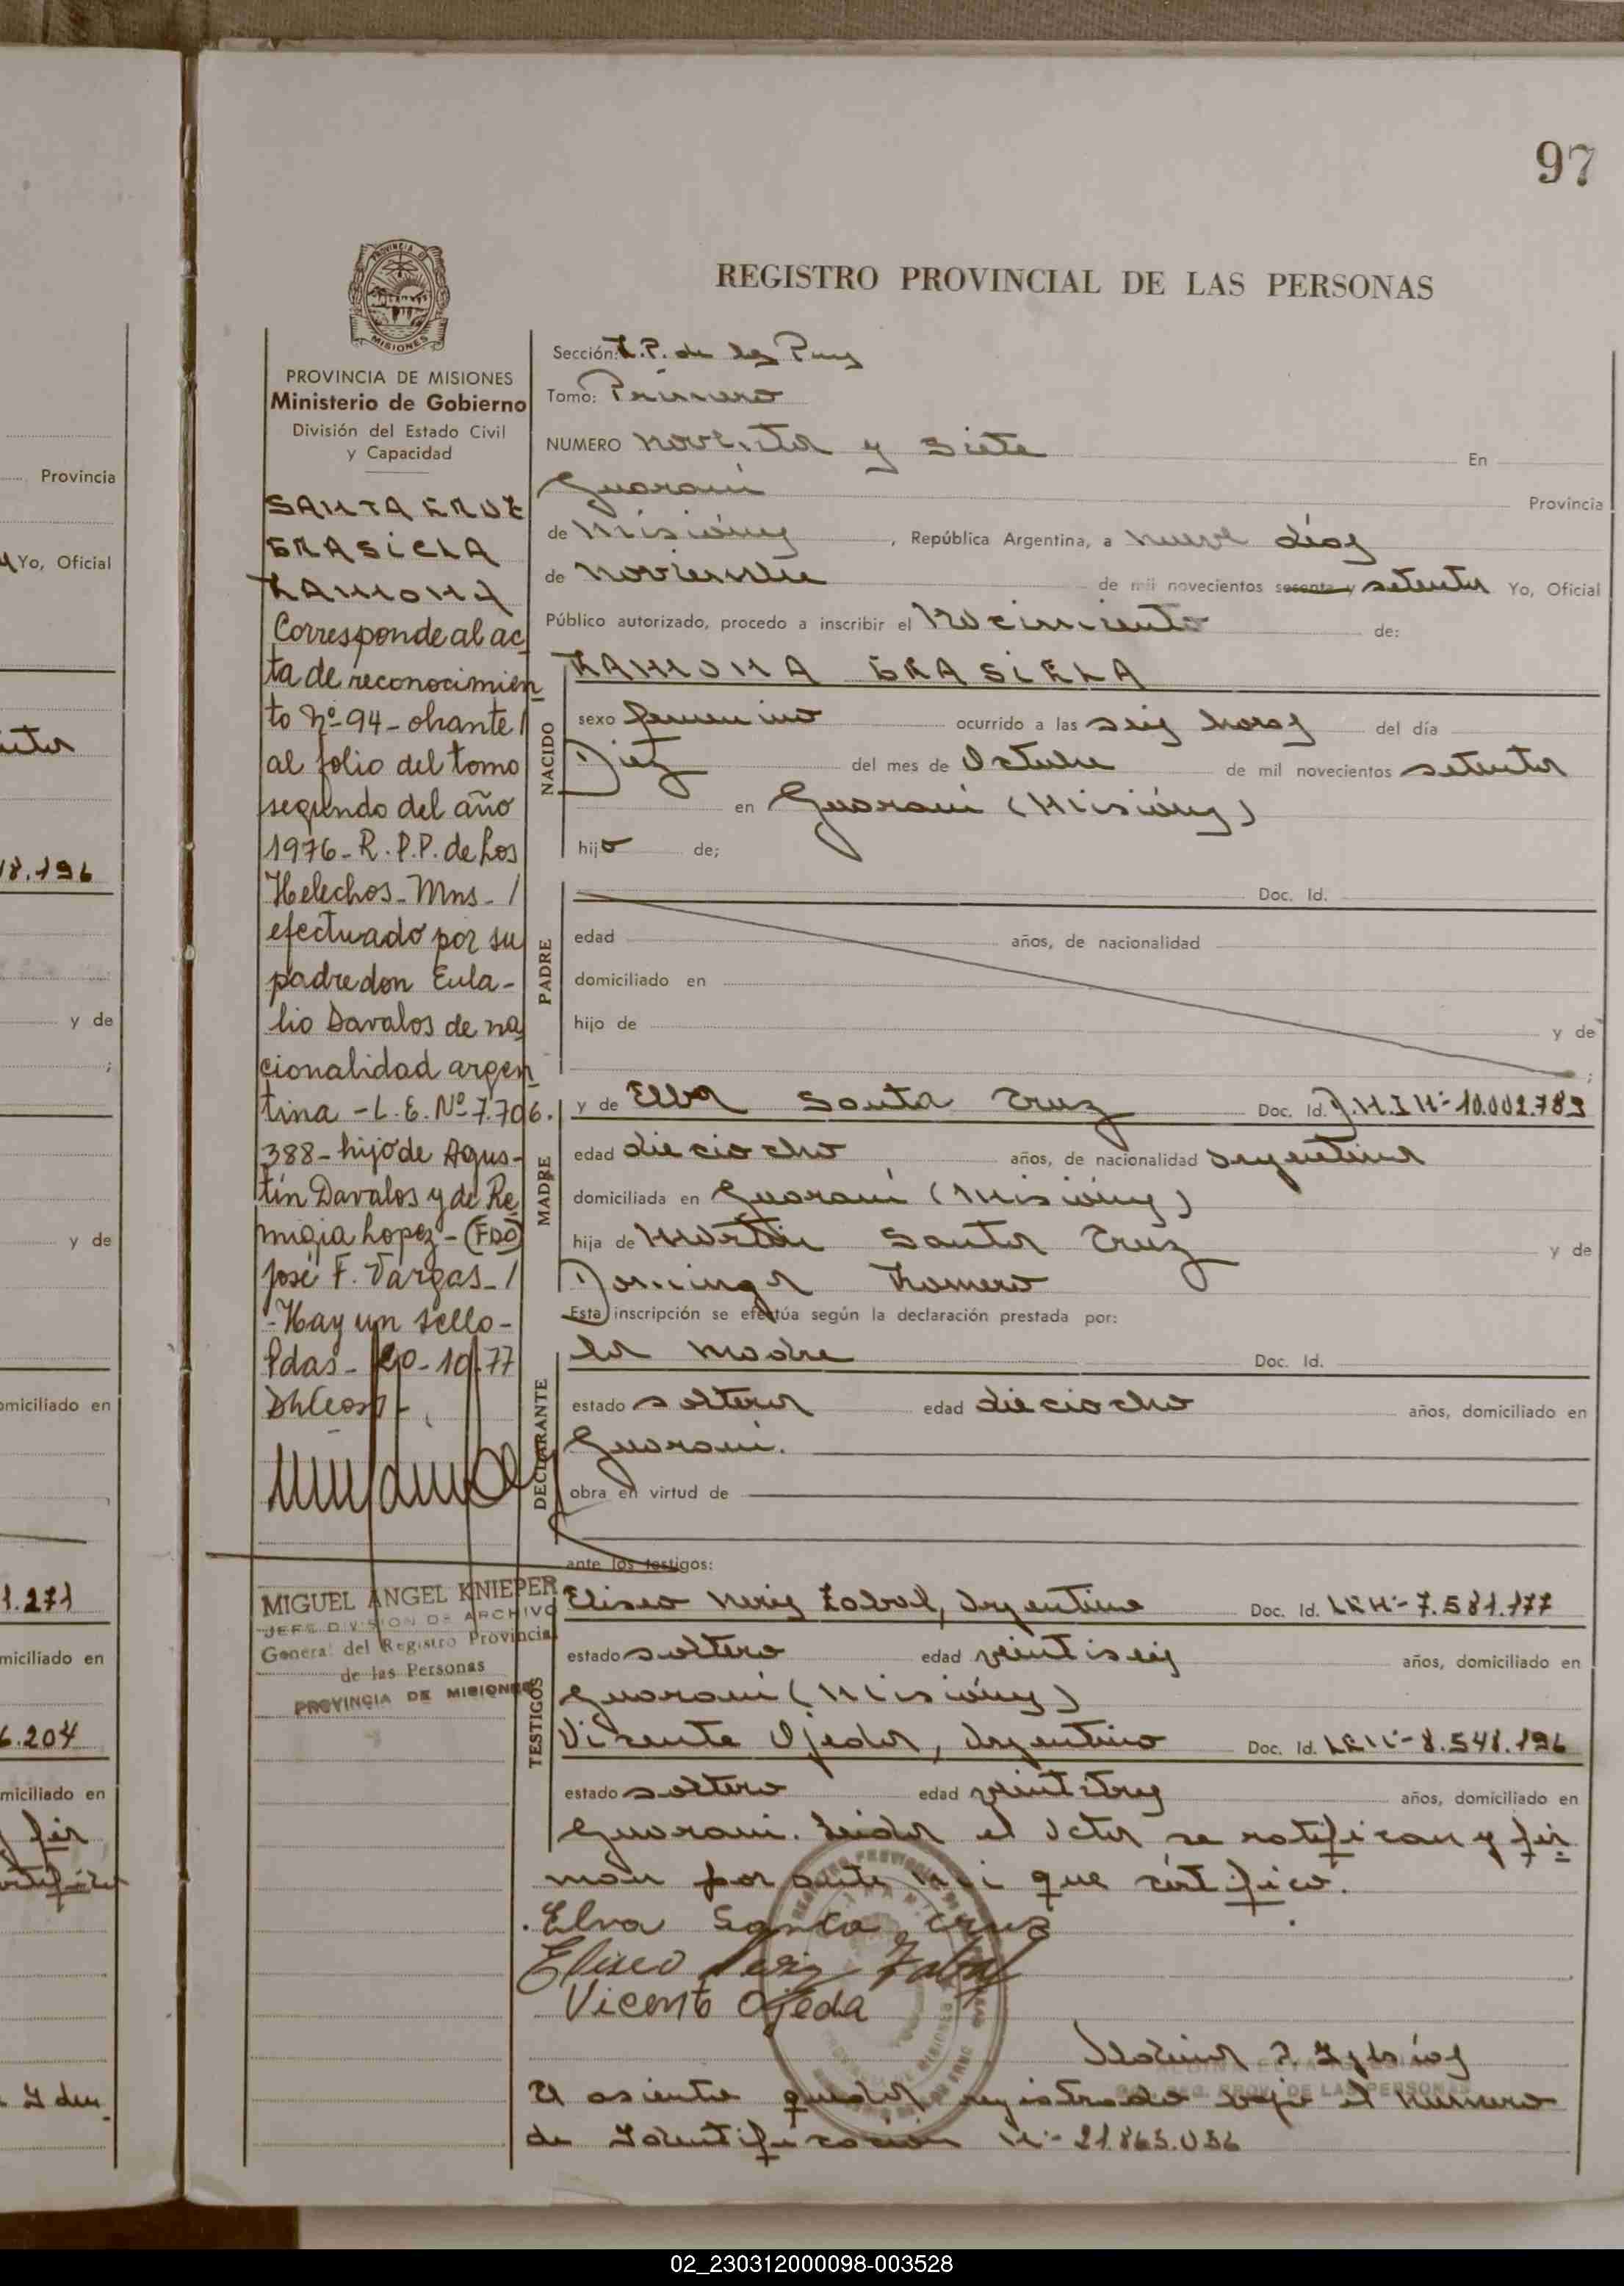 97
REGISTRO PROVINCIAL DE LAS PERSONAS
MISIONES
PROVINCIA DE MISIONES
Ministerio de Gobierno
División del Estado Civil
y Capacidad
SANTA CRUZ
GRASIELA
RAMONA
Corresponde al ac
ta de reconocimien
to Nº 94 - obrante /
al folio del tomo
segundo del año
1976 - R. P. P. de Los
Helechos - Mns - /
efectuado por su
padre don Eula-
lio Davalos de na
cionalidad argen
tina - L. E. Nº 7.706.
388 - hijo de Agus-
tín Davalos y de Re
migia Lopez - (FDO)
José F. Vargas - /
- Hay un sello -
Pdas - 20 - 10 - 77
MIGUEL ANGEL KNIEPER
JEFE DIVISION DE ARCHIVO
General del Registro Provincial
de las Personas
PROVINCIA DE MISIONES
Sección: R.P. de las
Tomo: Primero
NUMERO noventa y siete En
Guaraní Provincia
de Misiones, República Argentina, a nueve días
de noviembre de mil novecientos sesenta y setenta Yo, Oficial
Público autorizado, procedo a inscribir el Nacimiento de:
NACIDO
RAMONA GRASIELA
sexo femenino ocurrido a las seis horas del día
Diez del mes de Octubre de mil novecientos setenta
en Guaraní (Misiones)
hija de;
PADRE
Doc. Id.
edad años, de nacionalidad
domiciliado en
hijo de y de
;
MADRE
y de Elba Santa Cruz Doc. Id. D.N.I Nº 10.002.789
edad dieciocho años, de nacionalidad argentina
domiciliada en Guaraní (Misiones)
hija de Martín Santa Cruz y de
Dominga Romero
Esta inscripción se efectúa según la declaración prestada por:
DECLARANTE
la madre Doc. Id.
estado soltera edad dieciocho años, domiciliado en
Guaraní.
obra en virtud de
ante los testigos:
TESTIGOS
Eliseo Neris Zabal, Argentino Doc. Id. LE Nº 7.581.177
estado soltero edad veintiseis años, domiciliado en
Guaraní (Misiones)
Vicente Ojeda, Argentino Doc. Id. LE Nº 8.548.196
estado soltero edad veintitres años, domiciliado en
Guaraní. Leída el Acta se ratifican y fir
man por ante mi que certifico.
Elva Santa Cruz
Eliseo Neris Zabal
Vicente Ojeda
El asiento queda registrado bajo el Numero
de Identificación Nº 21.865.056
Provincia
Yo, Oficial
18.196
y de
;
y de
omiciliado en
1.271
miciliado en
6.204
miciliado en
fir
02_230312000098-003528